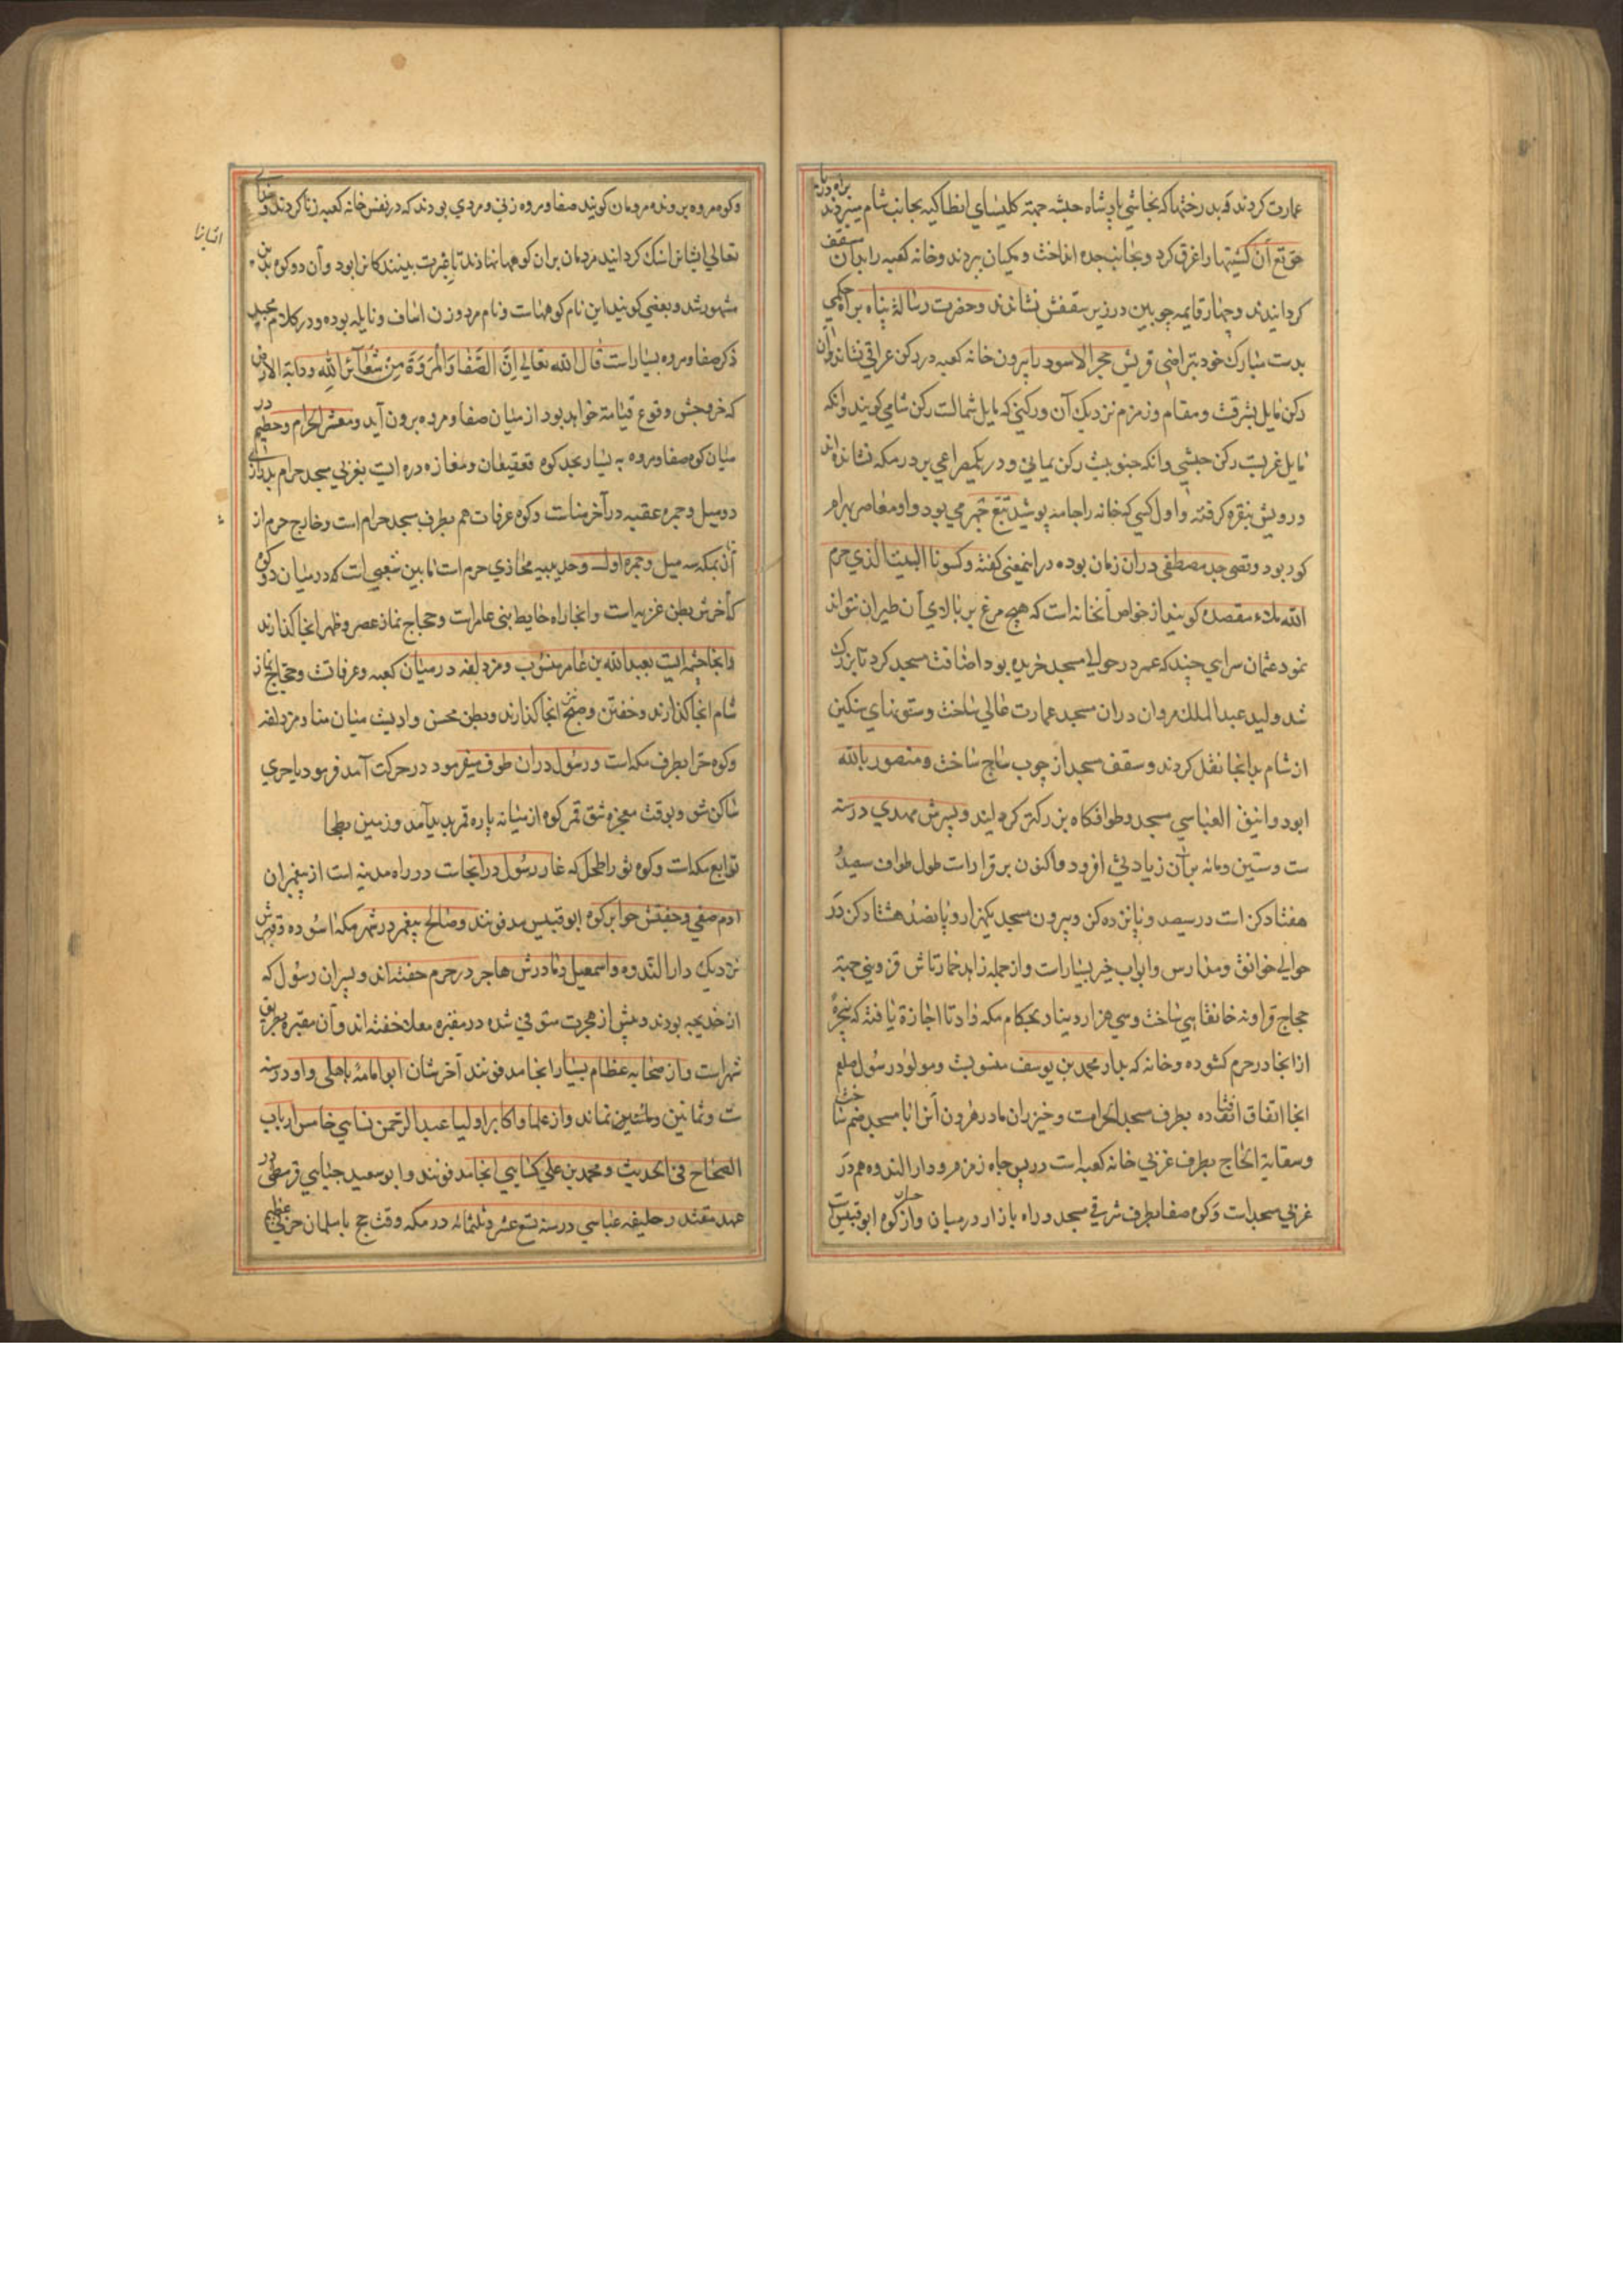 عمارت کردند و بدرختها که نجاشی پادشاه حبشه جهة کلیسای انطاکیه بجانب شام میبردند براه دریا
حق تع آن کشتیها را غرق کرد و بجانب جده انداخت و مکیان ببردند و خانه کعبه را بدان مسقف
کردانیدند و چهار قایمه چوبین در زیر سقفش نشاندند و حضرت رسالة پناه براه حکمی
بدست مبارک خود بتراضی قریش حجر الاسود را بیرون خانه کعبه در رکن عراقی نشاند و آن
رکن مایل بشرقت و مقام و زمزم نزدیک آن و رکنی که مایل شمالست رکن شامی کویند و آنکه
مایل غربیست رکن حبشی و آنکه جنوبیست رکن یمانی و در یکمصراعی بر در مکه نشانده اند
و رویش بنقره کرفته و اول کسی که خانه را جامه پوشید تبع حمیری بود و او معاصر بهرام
کور بود و قصی جد مصطفی در آن زمان بوده در اینمعنی کفته و کسونا البیت الذی حرم
الله ملاء مقصدة کویند از خواص آنخانه است که هیچ مرغ بر بالای آن طیران نتواند
نمود عثمان سرای چند که عمر در حوالی مسجد خریده بود اضافت مسجد کرد تا بزرک
شد ولید عبد الملک مروان در آن مسجد عمارت عالی ساخت و ستونهای سنکین
از شام بدانجا نقل کردند و سقف مسجد از چوب ساج ساخت و منصور بالله
ابو دوانیق العباسی مسجد و طوافکاه بزرکتر کردانید و پسرش مهدی در سنه
ست و ستین و مائه بر آن زیادتی افزود و اکنون بر قرارست طول طواف سیصد و
هفتاد کز است در سیصد و پانزده کز و بیرون مسجد یکهزار و پانصد و هشتاد کز در
حوالی خوانق و مدارس و ابواب خیر بسیارست و از جمله زاهد خمارتاش قزوینی جهة
حجاج قزاونه خانقاهی ساخت و سی هزار دینار بحکام مکه داد تا اجازة یافته که پنجرۀ
از آنجا در حرم کشوده و خانه که بدار محمد بن یوسف منسوبست و مولود رسول صلعم
آنجا اتفاق افتاده بطرف مسجد الحرامست و خیزران مادر هرون آنرا با مسجد ضم ساخت
و سقایة الحاج بطرف غربی خانه کعبه است در پس چاه زمزم و دار الندوه هم در
غربی مسجد است و کوه صفا بطرف شرقی مسجد و راه بازار در میان و از کوه ابو قبیس است
و کوه مروه بر وند مردمان کویند صفا و مروه زنی و مردی بودند که در نفس خانه کعبه زنا کردند و خدا
تعالی ایشانرا سنک کردانید مردمان بر آن کوهها نهادند تا عبرت بینندکانرا بود و آن دو کوه بدین
مشهور شد و بعضی کویند این نام کوههاست و نام مرد و زن اساف و نایله بوده و در کلام مجید
ذکر صفا و مروه بسیار است قال الله تعالی اِنَّ الصَّفَا وَالْمَرْوَةَ مِنْ شَعَآئِرِ اللهِ و دابة الارض
که خروجش وقوع قیامة خواهد بود از میان صفا و مروه برون آید و معشر الحرام و حطیم در
میان کوه صفا و مروه
دو میل و جمره عقبه در آخر مناست و کوه عرفات هم بطرف مسجد حرام است و خارج حرم از
که آخرش بطن عرنه است و آنجا راه حایط بنی عامرست و حجاج نماز عصر و ظهر آنجا کذارند
و آنجا چشمه ایست بعبد الله بن عامر منسوب و مزدلفه در میان کعبه و عرفاتست و حجاج نماز
شام آنجا کذارند و خفتن و صبح آنجا کذارند و بطن محسر وادیست میان منا و مزدلفه
و کوه حرا بطرف مکه است و رسول در آن طوف میفرمود در حرکت آمد فرمود یا حری
ساکن شو و بوقت معجزه شق قمر کوه از میانه پاره قمر پدید آمد و زمین بطحا
توابع مکه است و کوه ثور اطحل که غار رسول در آنجاست در راه مدینه است از پیغمبران
آدم صفی و جفتش حوا بر کوه ابو قبیس مدفونند و صالح پیغمبر در شهر مکه آسوده و قبرش
نزدیک دار الندوه و اسمعیل و مادرش هاجر در حرم خفته اند و پسران رسول که
از خدیجه بودند و پیش از هجرت متوفی شده در مقبره معلا خفته اند و آن مقبره بطریق
شهر است و از صحابه عظام بسیار آنجا مدفونند آخرشان ابو امامۀ باهلی و او در سنه
ست و ثمانین نماند و از علما و اکابر اولیا عبد الرحمن نسایی خامس ارباب
الصحاح فی الحدیث و محمد بن علی کتابی آنجا مدفونند و ابو سعید جنابی قرمطی در
عهد مقتدر خلیفه عباسی در سنه تسع عشر و ثلثمائه در مکه وقت حج با مسلمان حربی عظیم